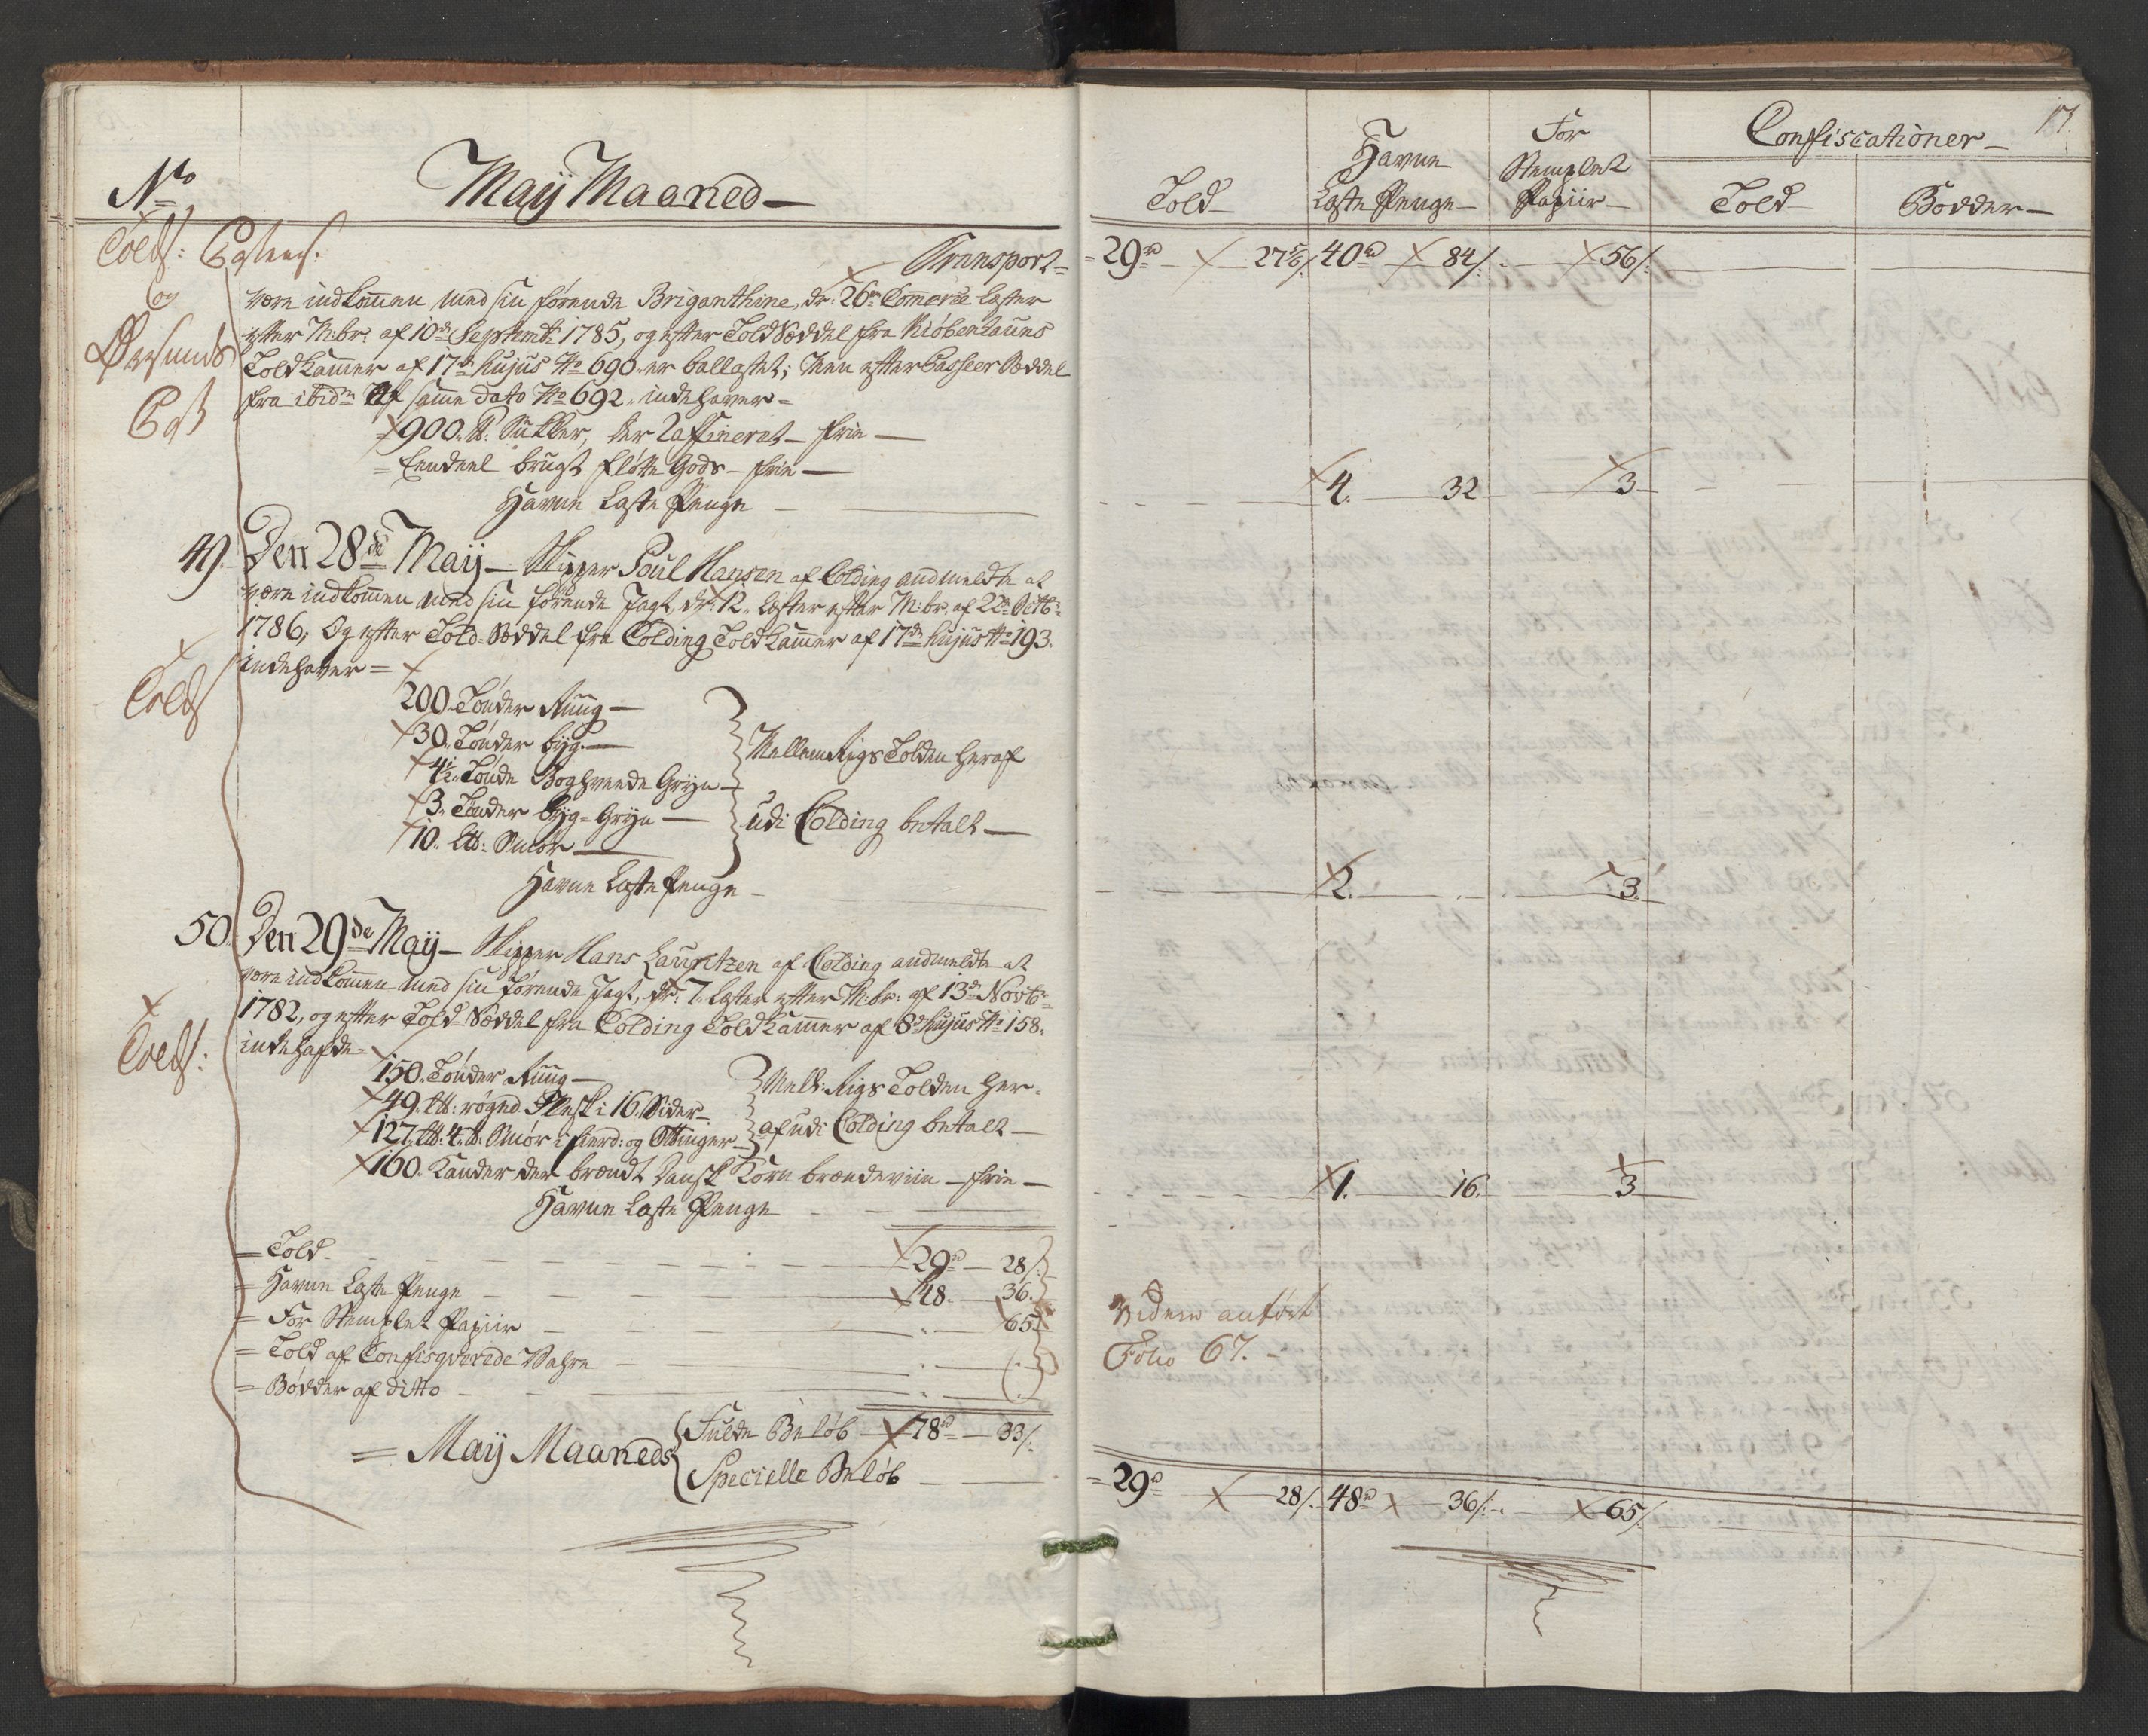 No
Maij Maaned —
Toldz: Attest:
og
Øresunds
Transport =
være indkommen med sin førende Briganthine, dr: 26 Commerce Læster
efter M:br: af 10de Septemb: 1785, og efter Told Sæddel fra Kiøbenhauns
Told Kammer af 17de hujus No 690. er ballastet; Men efter Passeer Sæddel
fra ibidm af samme dato No 692. indehaver =
900. ℔. Sukker, her Raffineret — frie —
= Eendeel brugt fløtte Gods — frie —
Havne Læste Penge —
49. Den 28de Maij — Skipper Poul Hansen af Colding andmeldte at
være indkommen med sin førende Jagt, dr: 12. Læster efter M:br: af 22de Octbr:
1786, Og efter Told = Sæddel fra Colding Told Kammer af 17de hujus No 193.
indehaver =
Toldz
200. Tønder Ruug —
30. Tønder byg. —
4½. Tønde Boghvende Gryn —
3. Tønder byg = Gryn —
10. L℔: Smør —
Mellem Rigs Tolden heraf
udi Colding betalt —
Havne Læste Penge —
50. Den 29de Maij — Skipper Hans Lauritzen af Colding andmeldte at
være indkommen med sin førende Jagt, dr: 7. Læster efter M:br: af 13de Novbr:
1782, og efter Told = Sæddel fra Colding Told Kammer af 8de hujus No 158.
indehafde =
Toldz:
150. Tønder Ruug —
49. L℔: røged Flesk i 16. Sider —
127. L℔: 4. ℔: Smør i fierd: og Ottinger —
Mell: Rigs Tolden her =
af udi Colding betalt —
160. Kander der brændt Dansk Korn brændeviin — frie —
Havne Læste Penge
= Told — 29rd — 28/:
= Havne Læste Penge — 48. — 36.
= For Stemplet Papiir — 65.
= Told af Confisqverede Vahre —
= Bødder af ditto —
= Maij Maaneds
Fulde Beløb — 78rd — 33/:
Specielle Beløb —
17.
Told —
Havne
Læste Penge —
For
Stemplet
Papiir —
Confiscationer —
Told —
Bødder —
= 29rd — 27 5/6/: 40rd 84/: 56/:
4. 32 3
2. 3.
1. 16. 3
anført
Folio 67. —
= 29rd 28/: 48rd 36/: 65/: